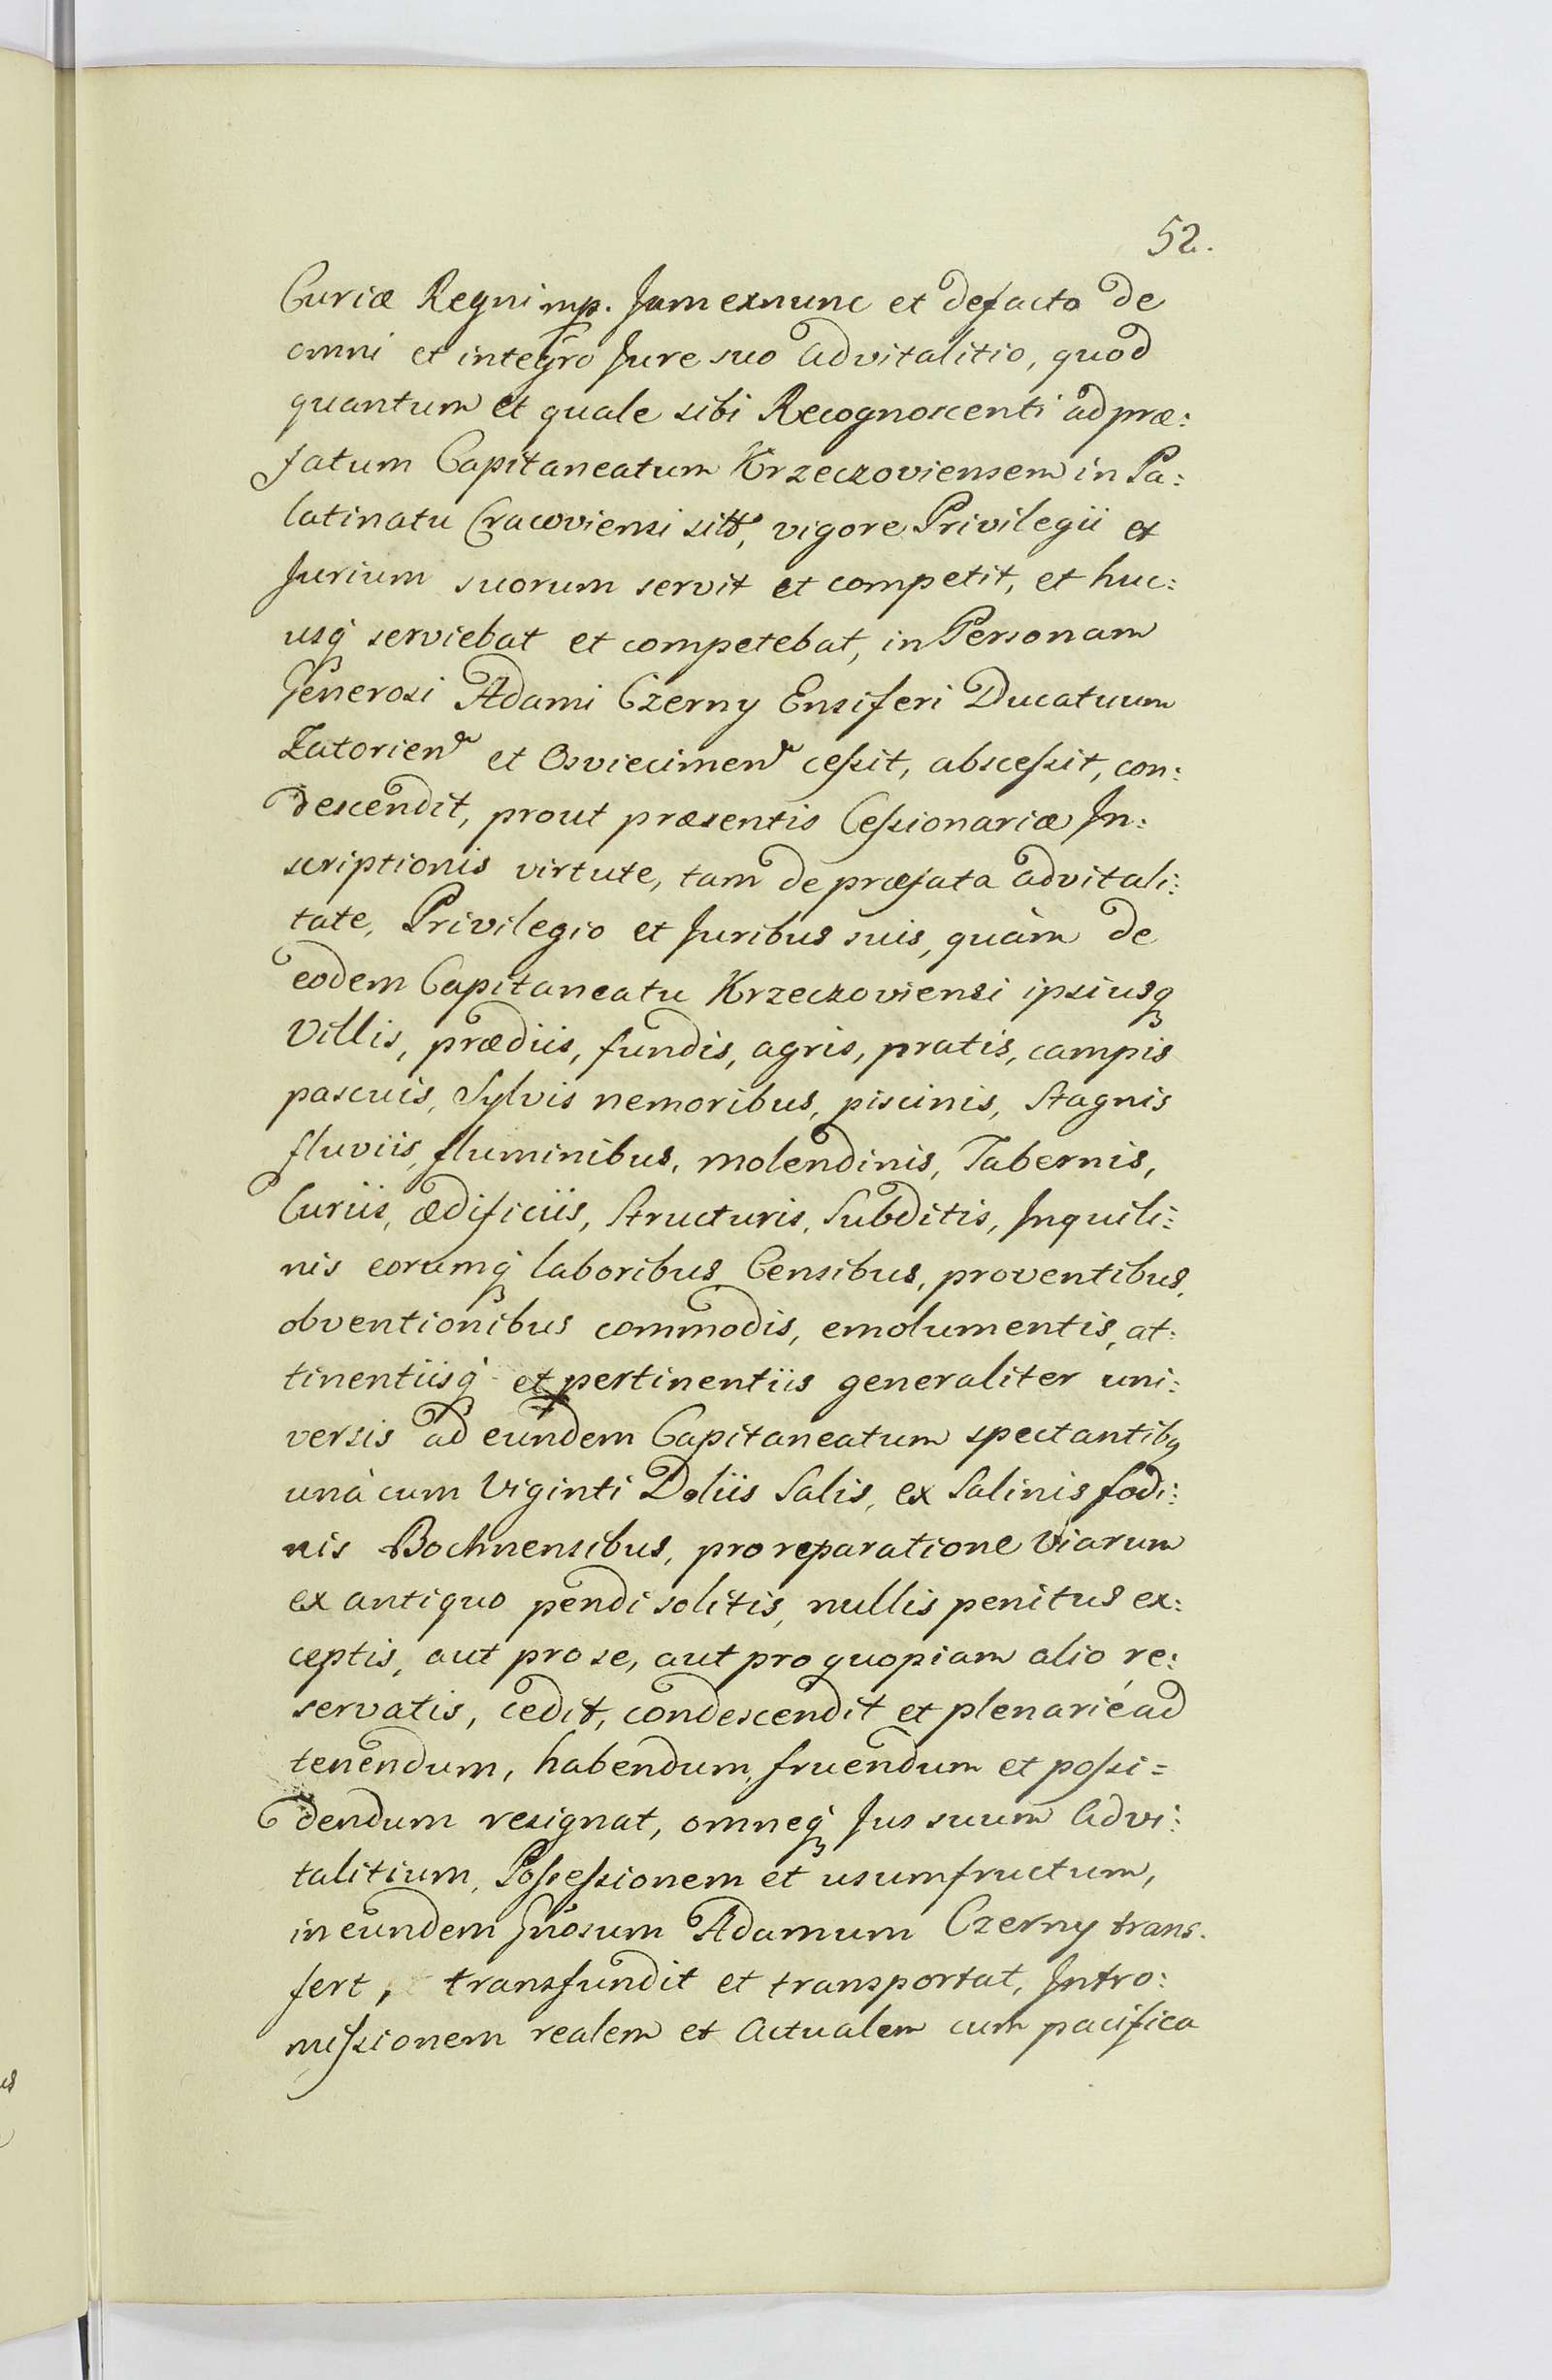 52.
Curiæ Regni mp. Jam exnunc et defacto de
omni et integro Jure suo advitalitio, quod
quantum et quale sibi Recognoscenti ad præ:
fatum Capitaneatum Krzeczoviensem in Pa:
latinatu Cracoviensi sitt, vigore Privilegii et
Jurium suorum servit et competit, et huc:
usq serviebat et competebat, in Personam
Generosi Adami Czerny Ensiferi Ducatuum
Zatorien et Osviecimen cessit, abscessit, con:
descendit, prout præsentis Cessionariæ In:
scriptionis virtute, tam de præfata advitali:
tate, Privilegio et Juribus suis, quàm de
eodem Capitaneatu Krzeczoviensi ipsiusq
Villis, prædiis, fundis, agris, pratis, campis
pascuis, Sylvis nemoribus, piscinis, Stagnis
fluviis, fluminibus, molendinis, Tabernis,
Curiis, ædificiis, Structuris, Subditis, Inquili:
nis eorumq laboribus Censibus, proventibus,
obventionibus commodis, emolumentis, at:
tinentiisq et pertinentiis generaliter uni:
versis ad eundem Capitaneatum spectantibq
unà cum Viginti Doliis Salis, ex Salinis fodi:
nis Bochnensibus, pro reparatione Viarum
ex antiquo pendi solitis, nullis penitus ex:
ceptis, aut pro se, aut pro quopiam alio re:
servatis, cedit, condescendit et plenarié ad
tenendum, habendum, fruendum et possi=
dendum resignat, omneq Jus suum advi:
talitium, Possessionem et usumfructum,
in eundem Gnosum Adamum Czerny trans.
fert, transfundit et transportat, Intro:
missionem realem et actualem cum pacifica